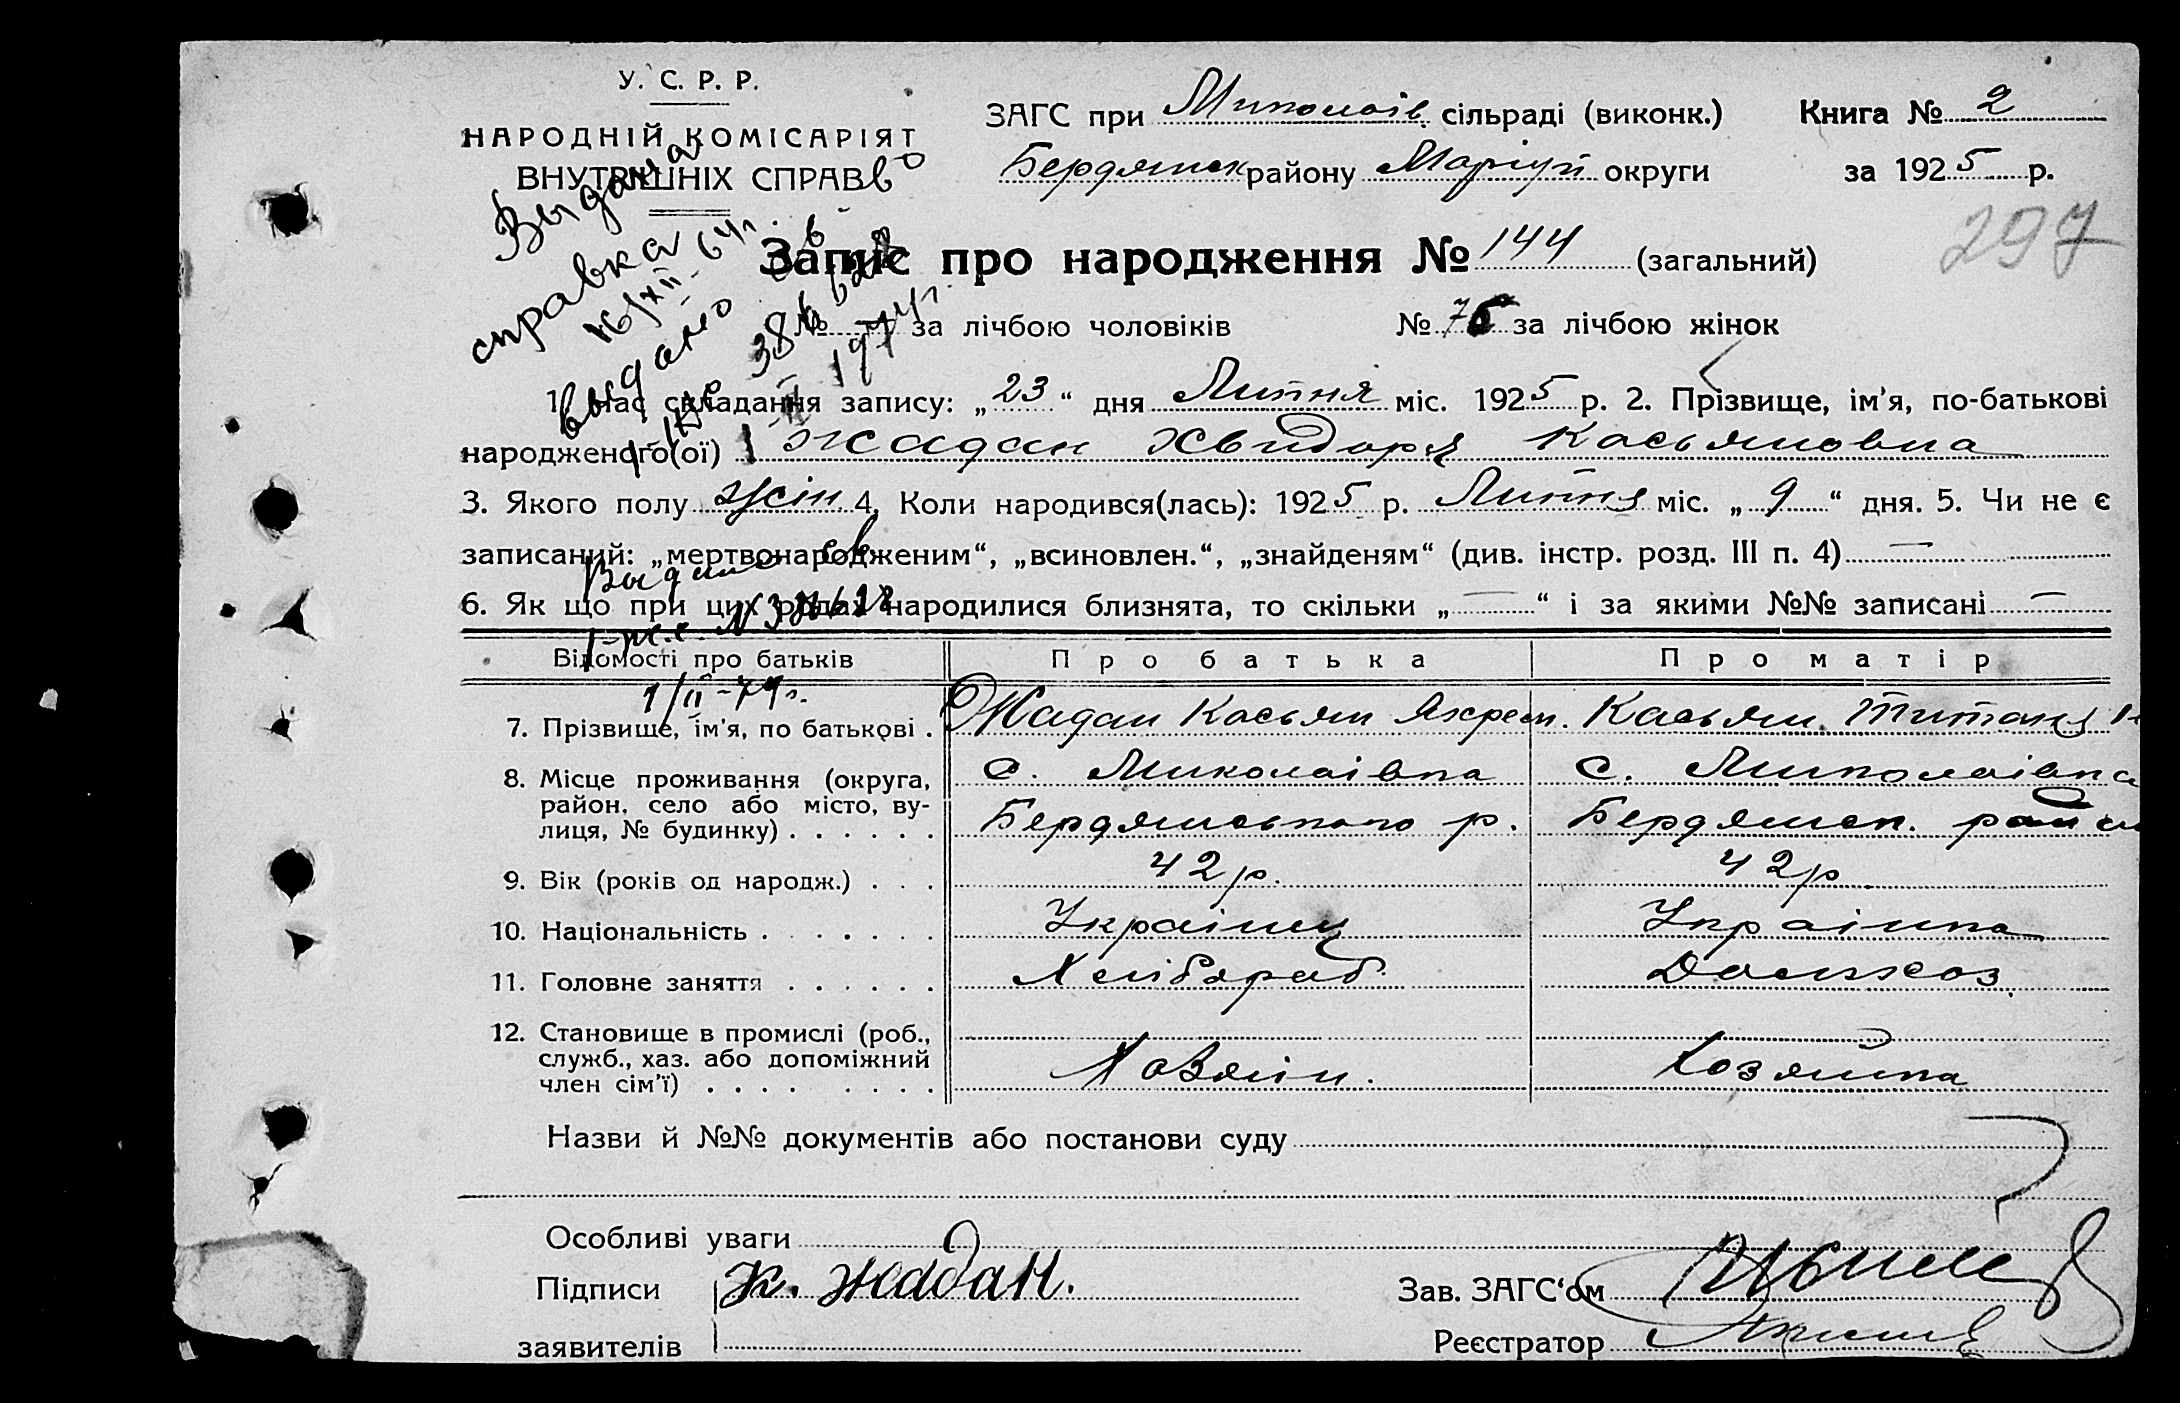 У. С. Р. Р.
НАРОДНІЙ КОМІСАРІЯТ
ВНУТРІШНІХ СПРАВ
ЗАГС при Миколаїв. сільраді (виконк.) Книга № 2
Бердянськ району Маріуп округи за 1925 р.
297
Выдана
справка
XII-64г.
выдано
Запис про народження № 144 (загальний)
№ за лічбою чоловіків № 75 за лічбою жінок
1. Час складання запису: „23“ дня Липня міс. 1925 р. 2. Прізвище, ім'я, по-батькові
народженого(ої) Жадан Хвидоря Касьяновна
3. Якого полу жін. 4. Коли народився(лась): 1925 р. Липня міс. „9“ дня. 5. Чи не є
записаний: „мертвонародженим“, „всиновлен.“, „знайденям“ (див. інстр. розд. III п. 4) —
Выдано св
6. Як що при цих родах народилися близнята, то скільки „—“ і за якими №№ записані —
Відомості про батьків Про батька Про матір
1/II-74г.
7. Прізвище, ім'я, по батькові . Жадан Касьян Яхрем. Касьян. Титаня
8. Місце проживання (округа, с. Миколаівка с. Миколаівка
район, село або місто, ву-
лиця, № будинку) . . . . . . Бердянського р. Бердянськ. район
9. Вік (років од народж.) . . . 42 р. 42 р
10. Національність . . . . . . . Українец Українка
11. Головне заняття . . . . . . Хлібороб Домхоз.
12. Становище в промислі (роб.,
служб., хаз. або допоміжний
член сім'ї) . . . . . . . . Хозяїн. Хозяйка
Назви й №№ документів або постанови суду
Особливі уваги
Підписи К. Жадан. Зав. ЗАГС'ом
заявителів Реєстратор